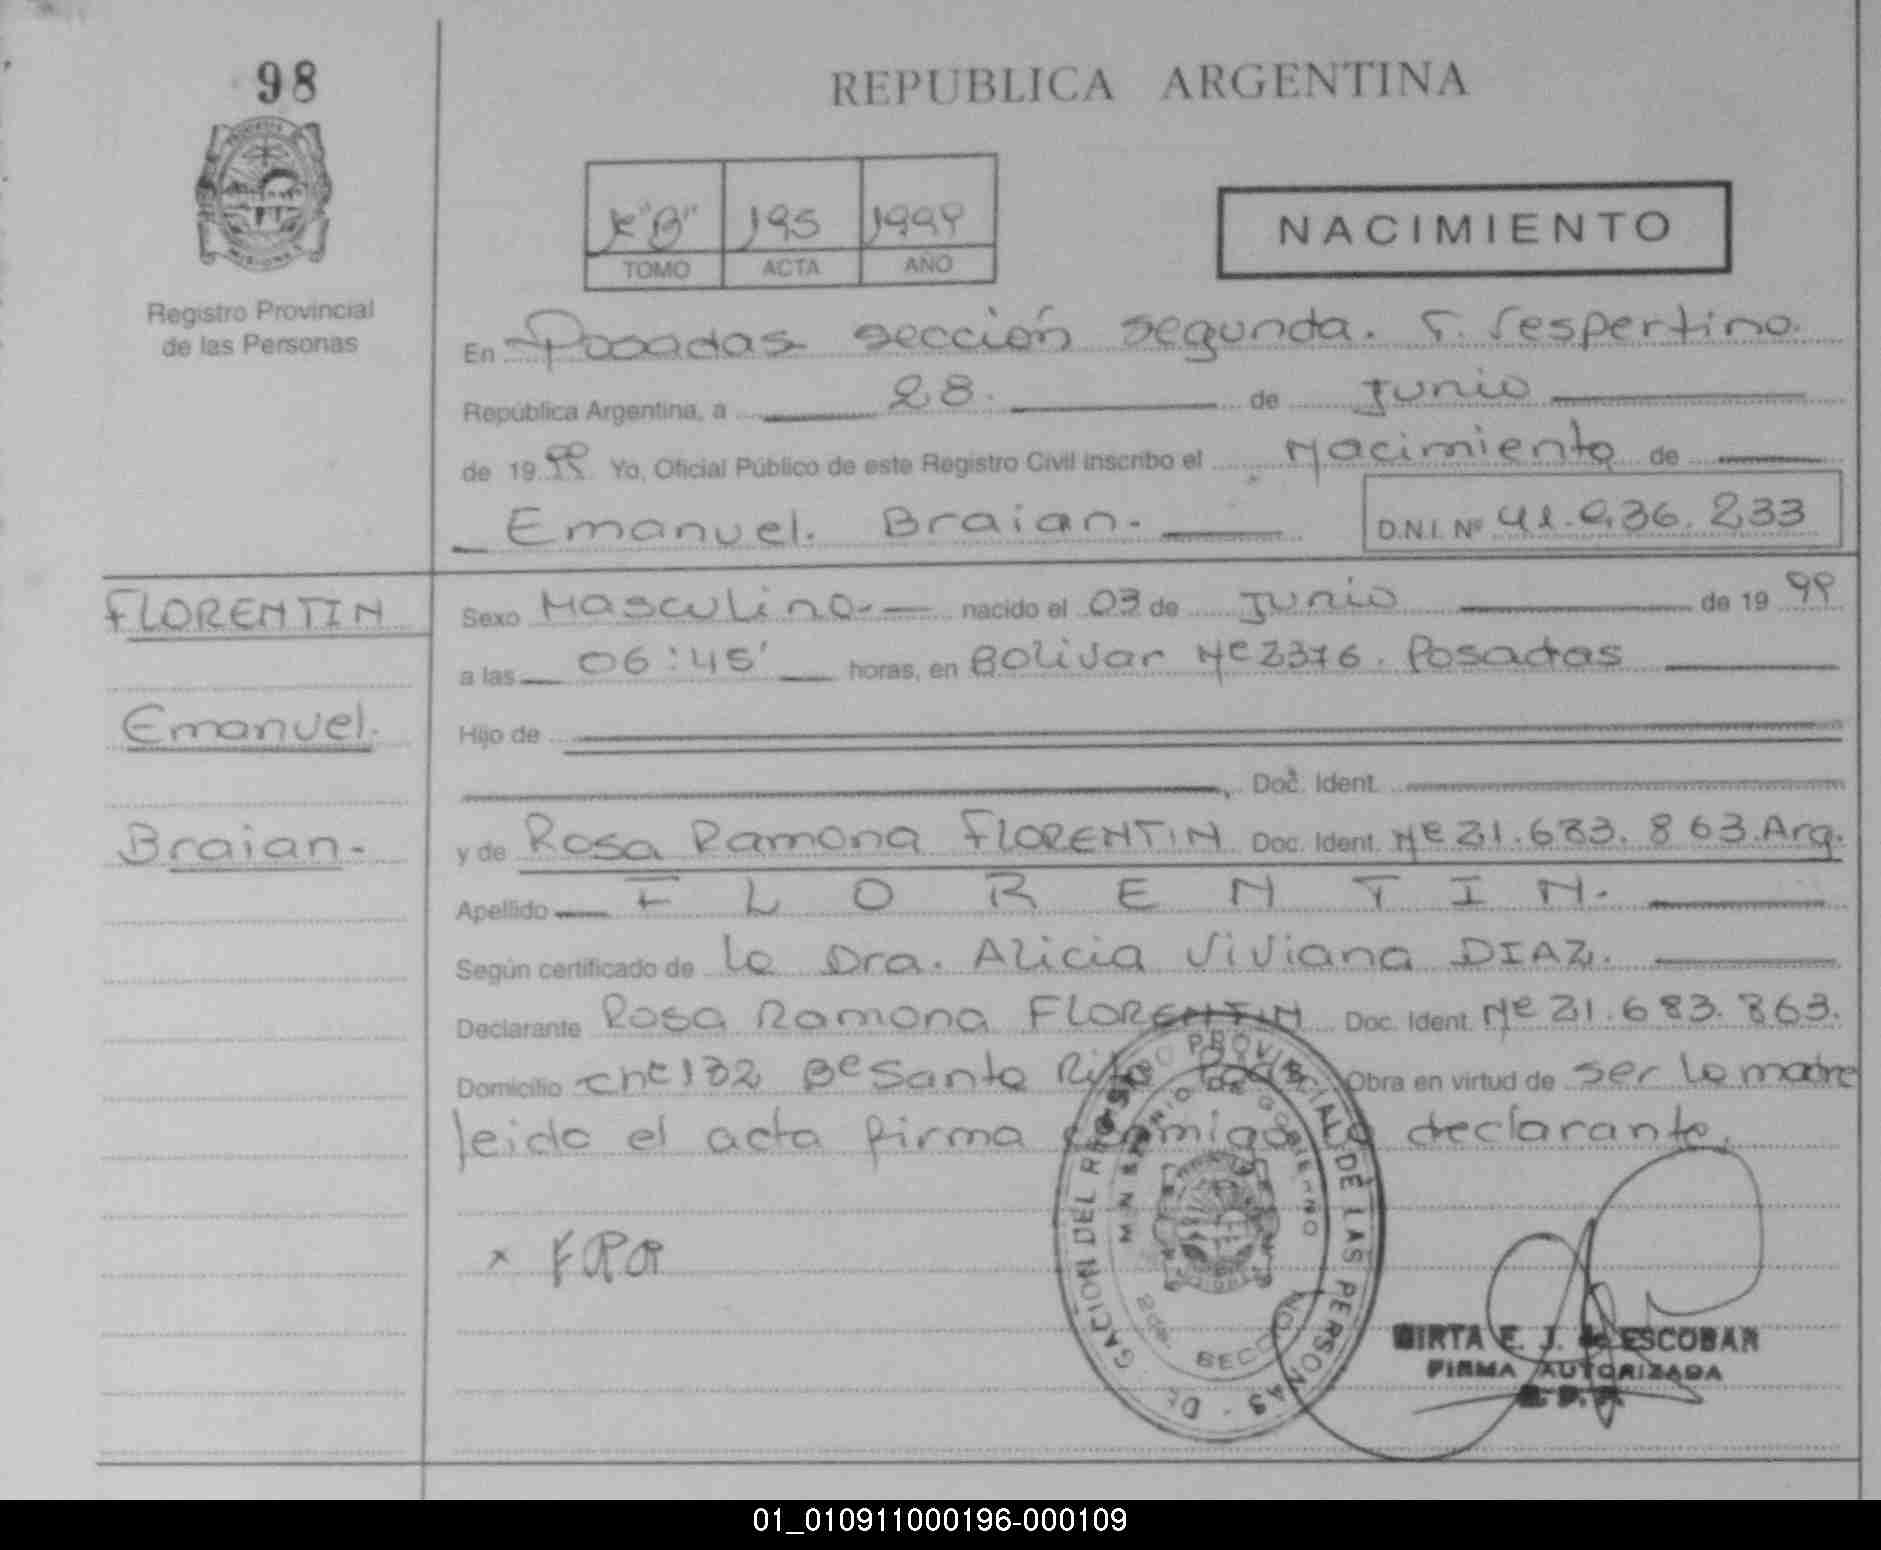 98
REPUBLICA ARGENTINA
"B" 195 1999
TOMO ACTA AÑO
NACIMIENTO
Registro Provincial
de las Personas
En Posadas sección segunda. T. Vespertino.
República Argentina, a 28. de Junio
de 1999 Yo, Oficial Público de este Registro Civil inscribo el Nacimiento de
Emanuel. Braian.
D.N.I. Nº 41.636.233
FLORENTIN
Emanuel.
Braian.
Sexo Masculino.- nacido el 03 de Junio de 1999
a las 06:45' horas, en Bolivar Nº 2376. Posadas
Hijo de
, Doc. Ident.
y de Rosa Ramona FLORENTIN Doc. Ident. Nº 21.683.863. Arg.
Apellido F L O R E N T I N.
Según certificado de la Dra. Alicia Viviana DIAZ.
Declarante Rosa Ramona FLORENTIN Doc. Ident. Nº 21.683.863.
Domicilio Chº 132 Bº Santa Rita Obra en virtud de ser la madre
leida el acta firma conmigo la declarante.
x FRR
DELEGACION DEL REGISTRO PROVINCIAL DE LAS PERSONAS
MINISTERIO DE GOBIERNO
MISIONES
2da. SECCION
MIRTA E. J. de ESCOBAR
FIRMA AUTORIZADA
R. P. P.
01_010911000196-000109